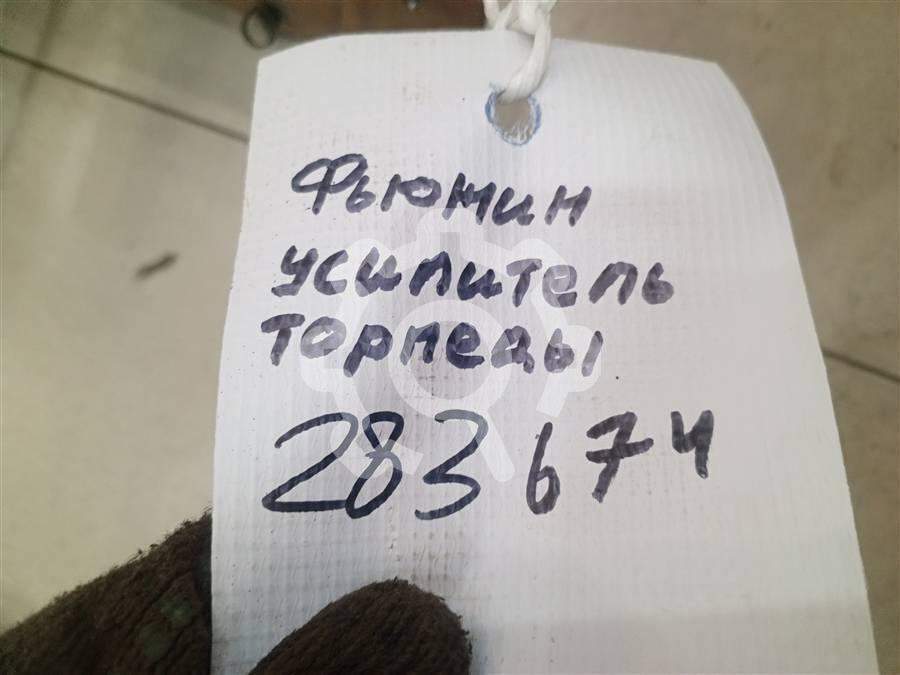 Фьюжин
усилитель
торпеды
283674